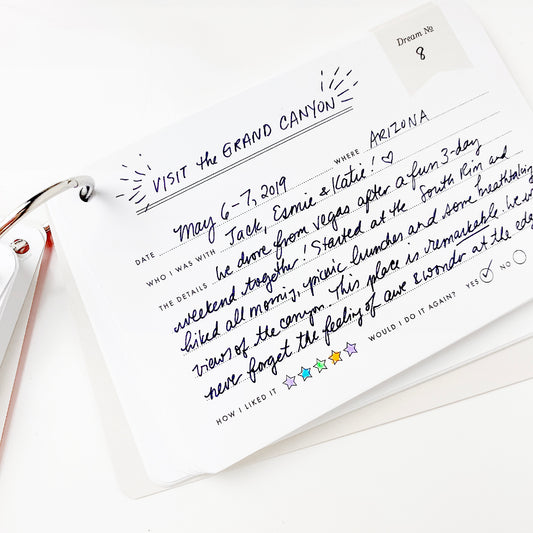 Dream №
8
VISIT the GRAND CANYON
WHERE ARIZONA
DATE May 6-7, 2019
WHO I WAS WITH Jack, Esmie & Katie! ♡
THE DETAILS We drove from Vegas after a fun 3-day
weekend together! Started at the South Rim and
hiked all morning, picnic lunches and some breathtaking
views of the canyon. This place is remarkable. We w
never forget the feeling of awe & wonder at the edge
HOW I LIKED IT
WOULD I DO IT AGAIN? YES ✓ NO